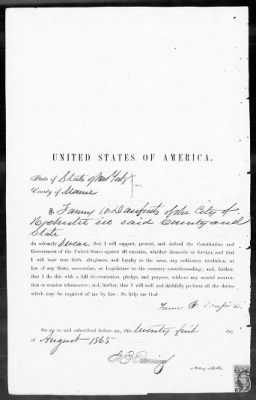 UNITED STATES OF AMERICA.
State of State of New York
County of Monroe
I, Fanny W Danforth of the City of
Rochester in said County and
State
do solemnly swear that I will support, protect, and defend the Constitution and
Government of the United States against all enemies, whether domestic or foreign, and that
I will bear true faith, allegiance, and loyalty to the same, any ordinance, resolution, or
law of any State, convention, or Legislature to the contrary notwithstanding; and, further,
that I do this with a full determination, pledge, and purpose, without any mental reserva-
tion or evasion whatsoever; and, further, that I will well and faithfully perform all the duties
which may be required of me by law. So help me God.
Sworn to and subscribed before me, this twenty first day
of August 1865
Notary Public